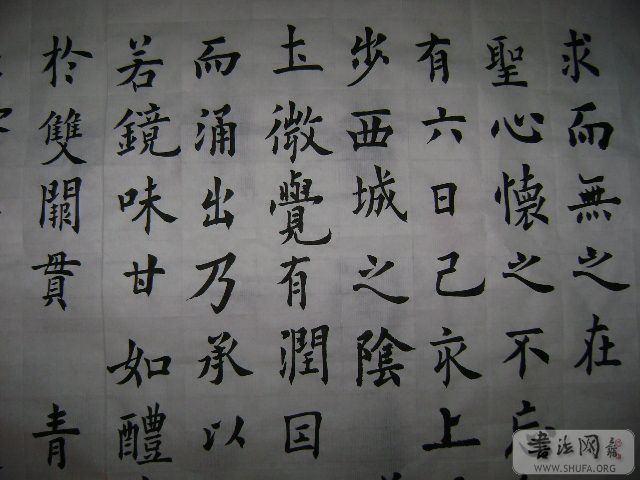 求而無之在
聖心懷之不忘
有六日己亥上
步西城之陰
土微覺有潤因
而涌出乃承以
若鏡味甘如醴
於雙闕貫 青
书法网
WWW.SHUFA.ORG